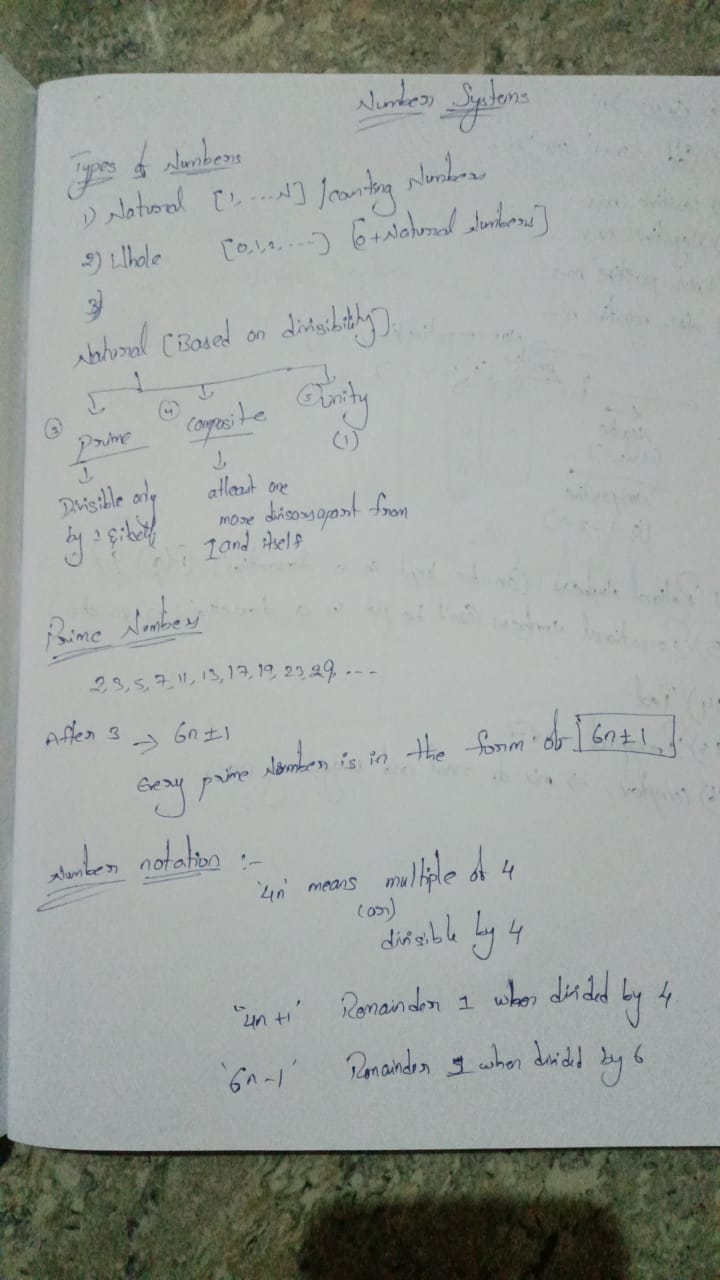 Number Systems
Types of Numbers
1) Natural [1, ....N] / counting Numbers
2) Whole [0,1,2, ....] [0+Natural Numbers]
3)
Natural [Based on divisibility].
③ prime ④ composite ⑤ unity
(1)
Divisible only
by 1 &
atleast one
more divisors apart from
1 and itself
Prime Numbers
2,3,5,7,11,13,17,19,23,29, ...
After 3 → 6n ± 1
Every prime Number is in the form of 6n ± 1.
Number notation :-
'4n' means multiple of 4
(or)
divisible by 4
"4n +1' Remainder 1 when divided by 4.
'6n-1' Remainder when divided by 6